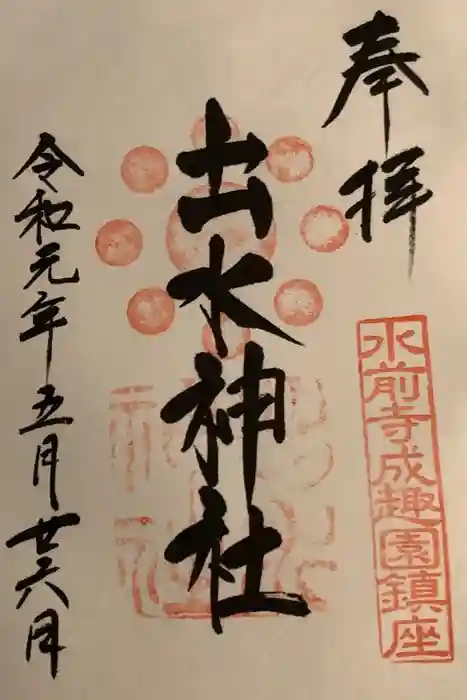 奉拝
水前寺成趣園鎮座
出水神社
令和元年五月廿六日